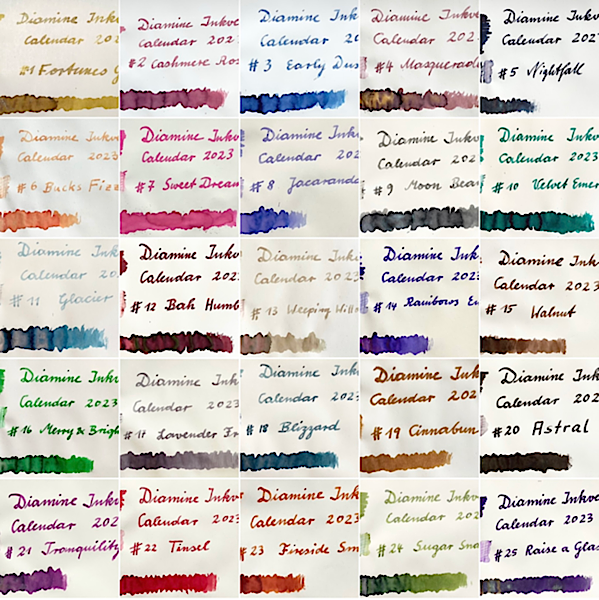 Diamine Ink
Calendar 202
#1 Fortunes g
Diamine Inkv
Calendar 202
#2 Cashmere Ros
Diamine Ink
Calendar 202
#3 Early Dus
Diamine Inkv
Calendar 202
#4 Masquerade
Diamine Inkv
Calendar 202
#5 Nightfall
Diamine Inkv
Calendar 2023
#6 Bucks Fizz
Diamine Inkv
Calendar 2023
#7 Sweet Dream
Diamine Ink
Calendar 202
#8 Jacaranda
Diamine Inkv
Calendar 202
#9 Moon Bea
Diamine Inkv
Calendar 2023
#10 Velvet Emer
Diamine Ink
Calendar 20
#11 Glacier
Diamine Inkv
Calendar 202
#12 Bah Humb
Diamine Ink
Calendar 2023
#13 Weeping Will
Diamine Inkv
Calendar 202
#14 Rainbows En
Diamine Inkv
Calendar 202
#15 Walnut
Diamine Inkv
Calendar 2023
#16 Merry & Brigh
Diamine Ink
Calendar 2023
#17 Lavender Fr
Diamine Ink
Calendar 202
#18 Blizzard
Diamine Inkv
Calendar 202
#19 Cinnabun
Diamine Ink
Calendar 202
#20 Astral
Diamine Inkv
Calendar 202
#21 Tranquility
Diamine Inkv
Calendar 2023
#22 Tinsel
Diamine Ink
Calendar 202
#23 Fireside Sn
Diamine Inkv
Calendar 202
#24 Sugar Sna
Diamine Inkv
Calendar 2023
#25 Raise a Glas